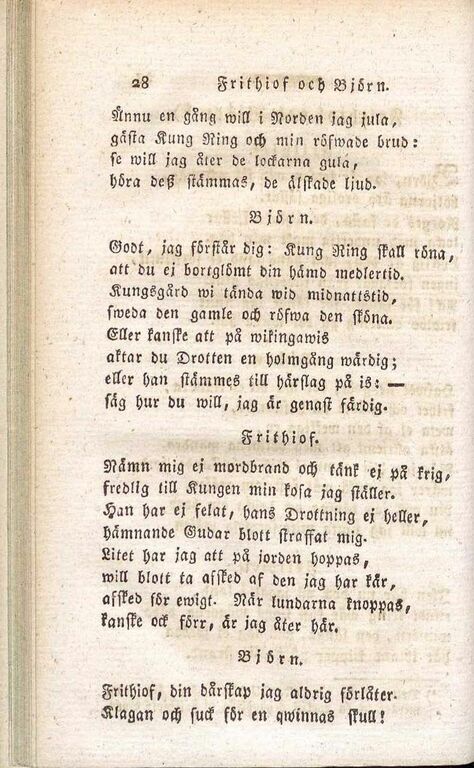 28 Frithiof och Björn.
Ännu en gång will i Norden jag jula,
gästa Kung Ring och min röfwade brud:
se will jag åter de lockarna gula,
höra deß stämmas, de älskade ljud.
Björn.
Godt, jag förstår dig: Kung Ring skall röna,
att du ej bortglömt din hämd medlertid.
Kungsgård wi tända wid midnattstid,
sweda den gamle och röfwa den sköna.
Eller kanske att på wikingawis
aktar du Drotten en holmgång wärdig;
eller han stämmes till härslag på is: —
säg hur du will, jag är genast färdig.
Frithiof.
Nämn mig ej mordbrand och tänk ej på krig,
fredlig till Kungen min kosa jag ställer.
Han har ej felat, hans Drottning ej heller,
hämnande Gudar blott straffat mig.
Litet har jag att på jorden hoppas,
will blott ta afsked af den jag har kär,
afsked för ewigt. När lundarna knoppas,
kanske ock förr, är jag åter här.
Björn.
Frithiof, din dårskap jag aldrig förlåter.
Klagan och suck för en qwinnas skull!